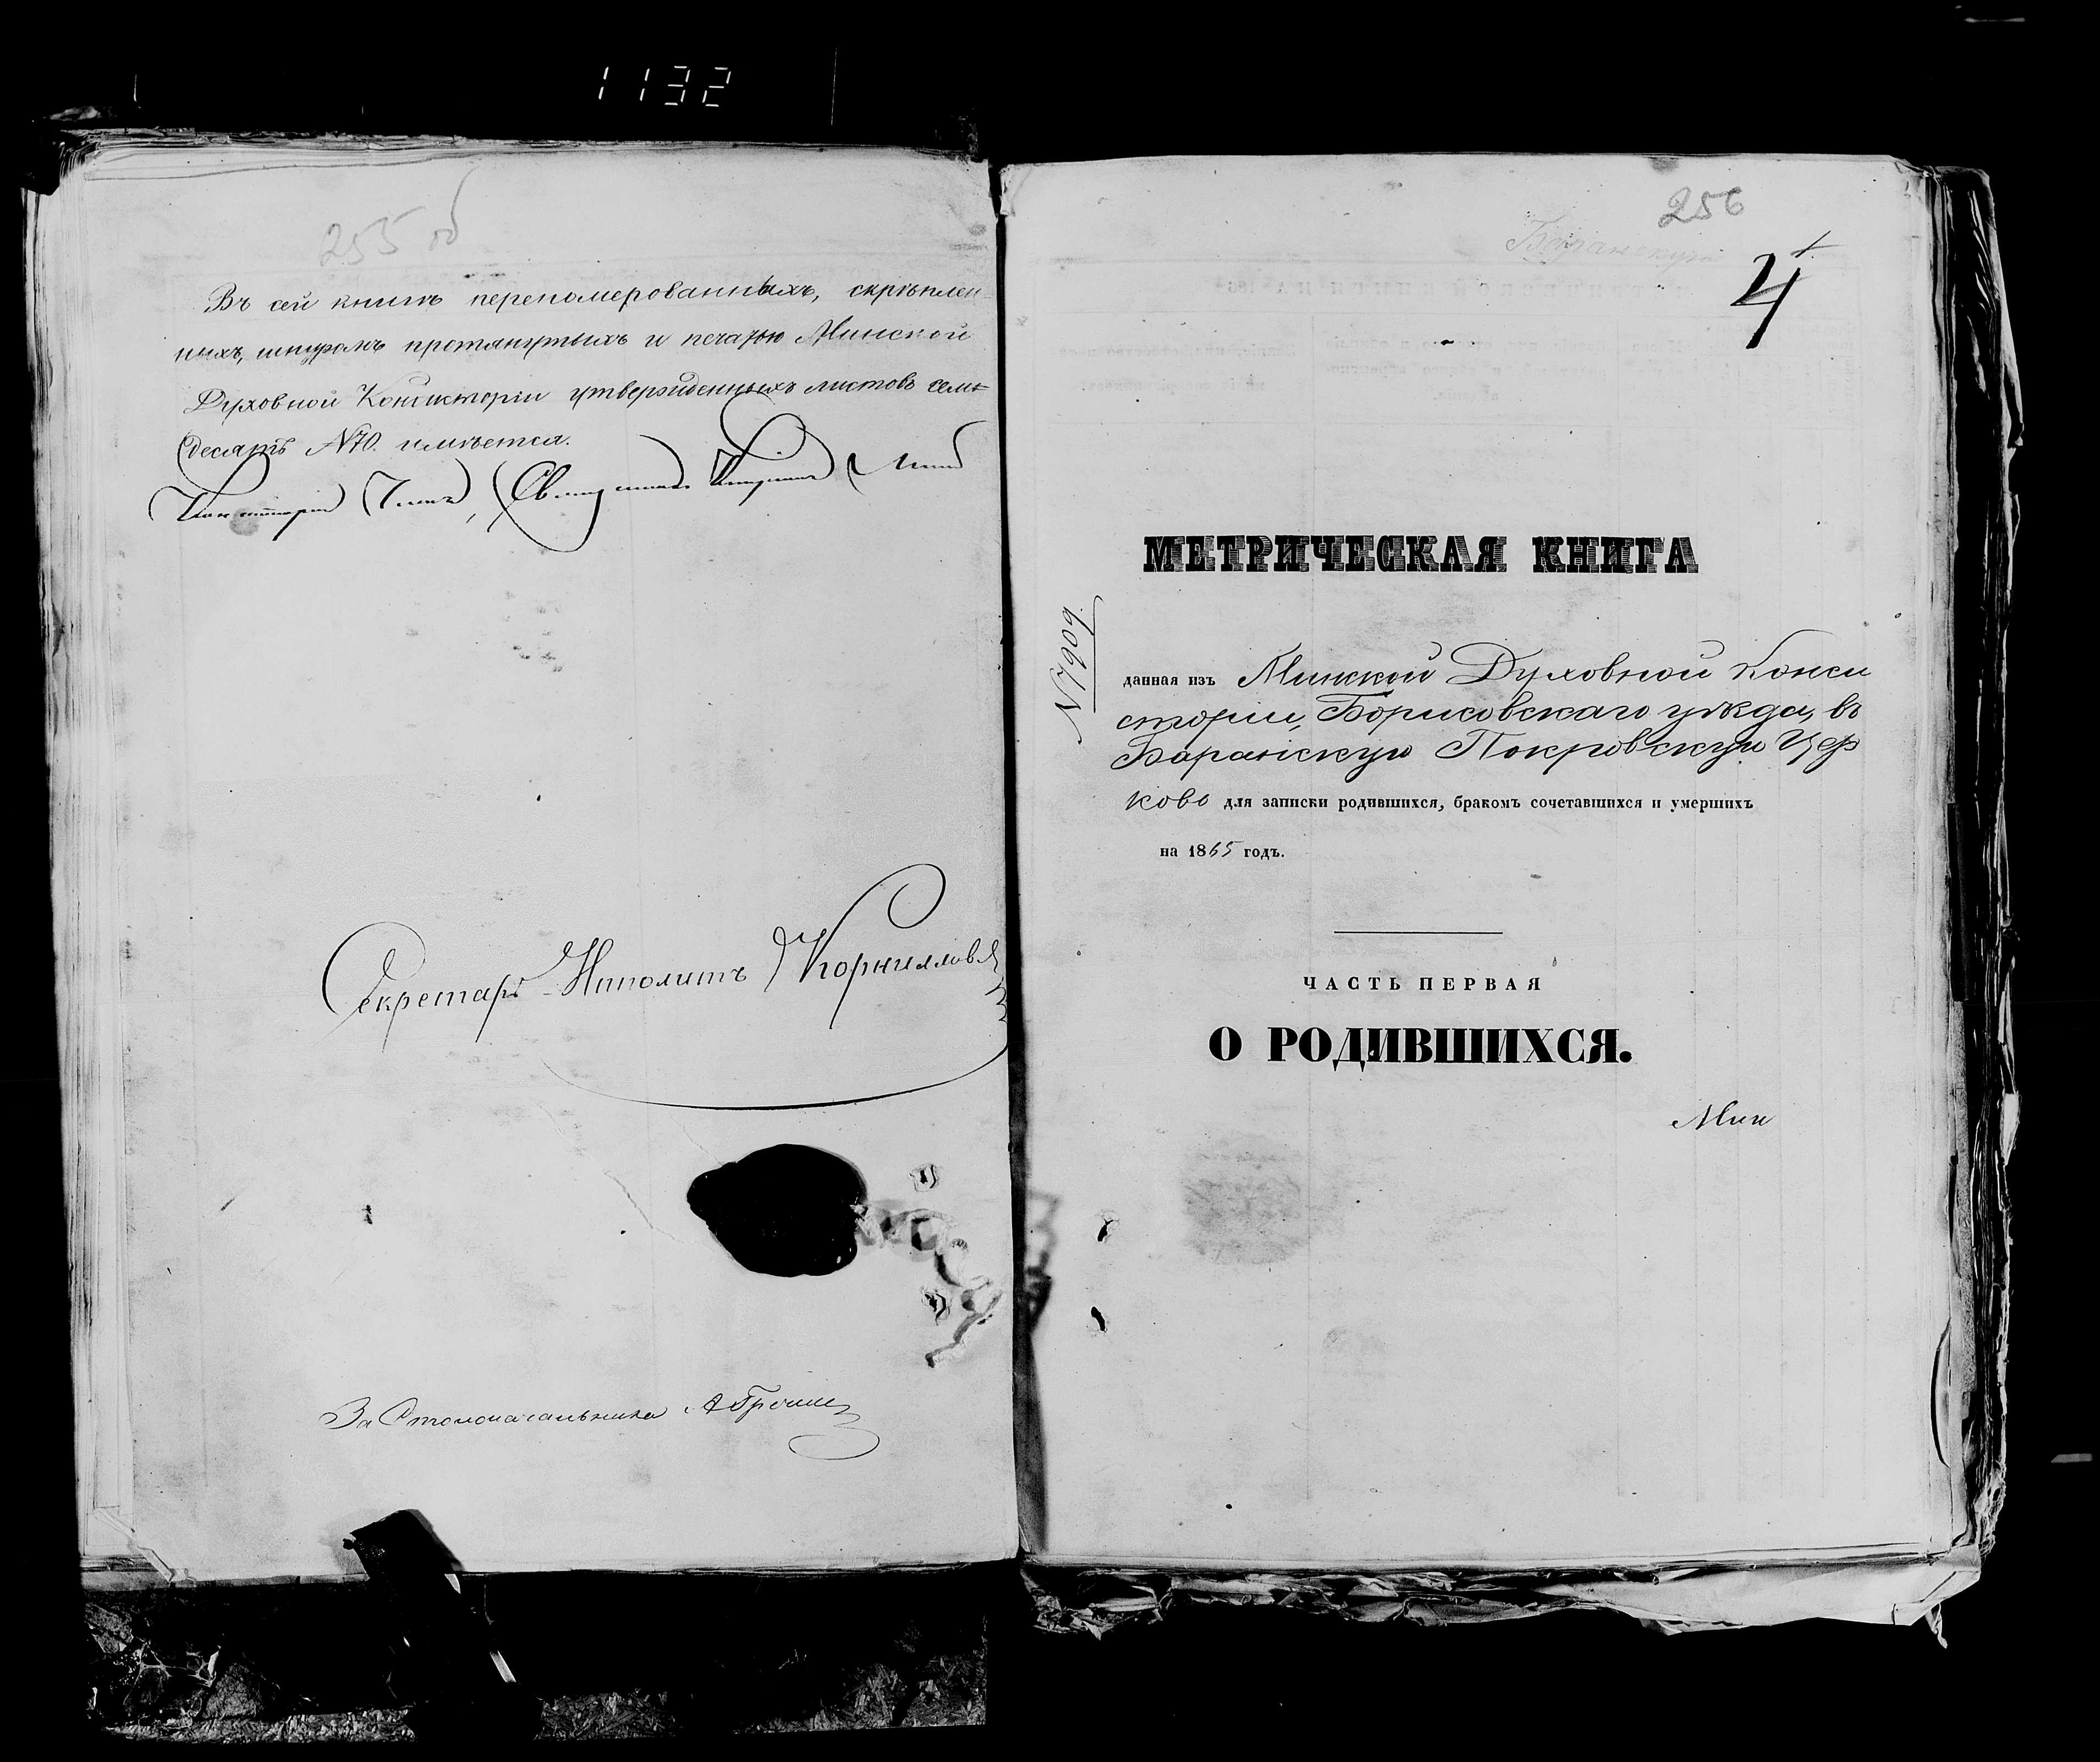 1132
255 об
Въ сей книгѣ переномерованныхъ, скрѣплен-
ныхъ, шнуромъ протянутыхъ и печатью Минской
Духовной Консисторіи утвержденныхъ листовъ семь
десятъ N70. имѣется.
Консисторіи Членъ, Священникъ
Секретарь Ипполитъ Корнилловъ
За Столоначальника
256
Баранскую
4
МЕТРИЧЕСКАЯ КНИГА
N7909
данная изъ Минской Духовной Конси
сторіи, Борисовскаго уѣзда, въ
Баранскую Покровскую Цер
ковь для записки родившихся, бракомъ сочетавшихся и умершихъ
на 1865 годъ.
ЧАСТЬ ПЕРВАЯ
О РОДИВШИХСЯ.
Мин